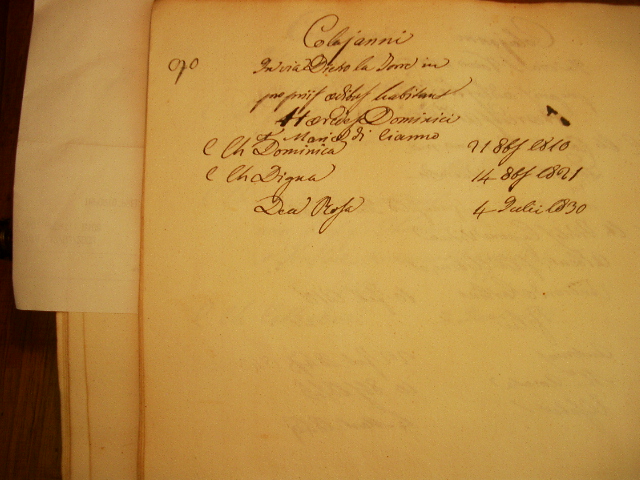 Colajanni
90 In via Dietro la Torre in
propriis aedibus habitant
Haeredes Dominici
Maria di Cianno
C Ch Dominica 21 8bʃ 1810
C Ch Digna 14 8bʃ 1821
Dea Rosa 4 Julii 1830